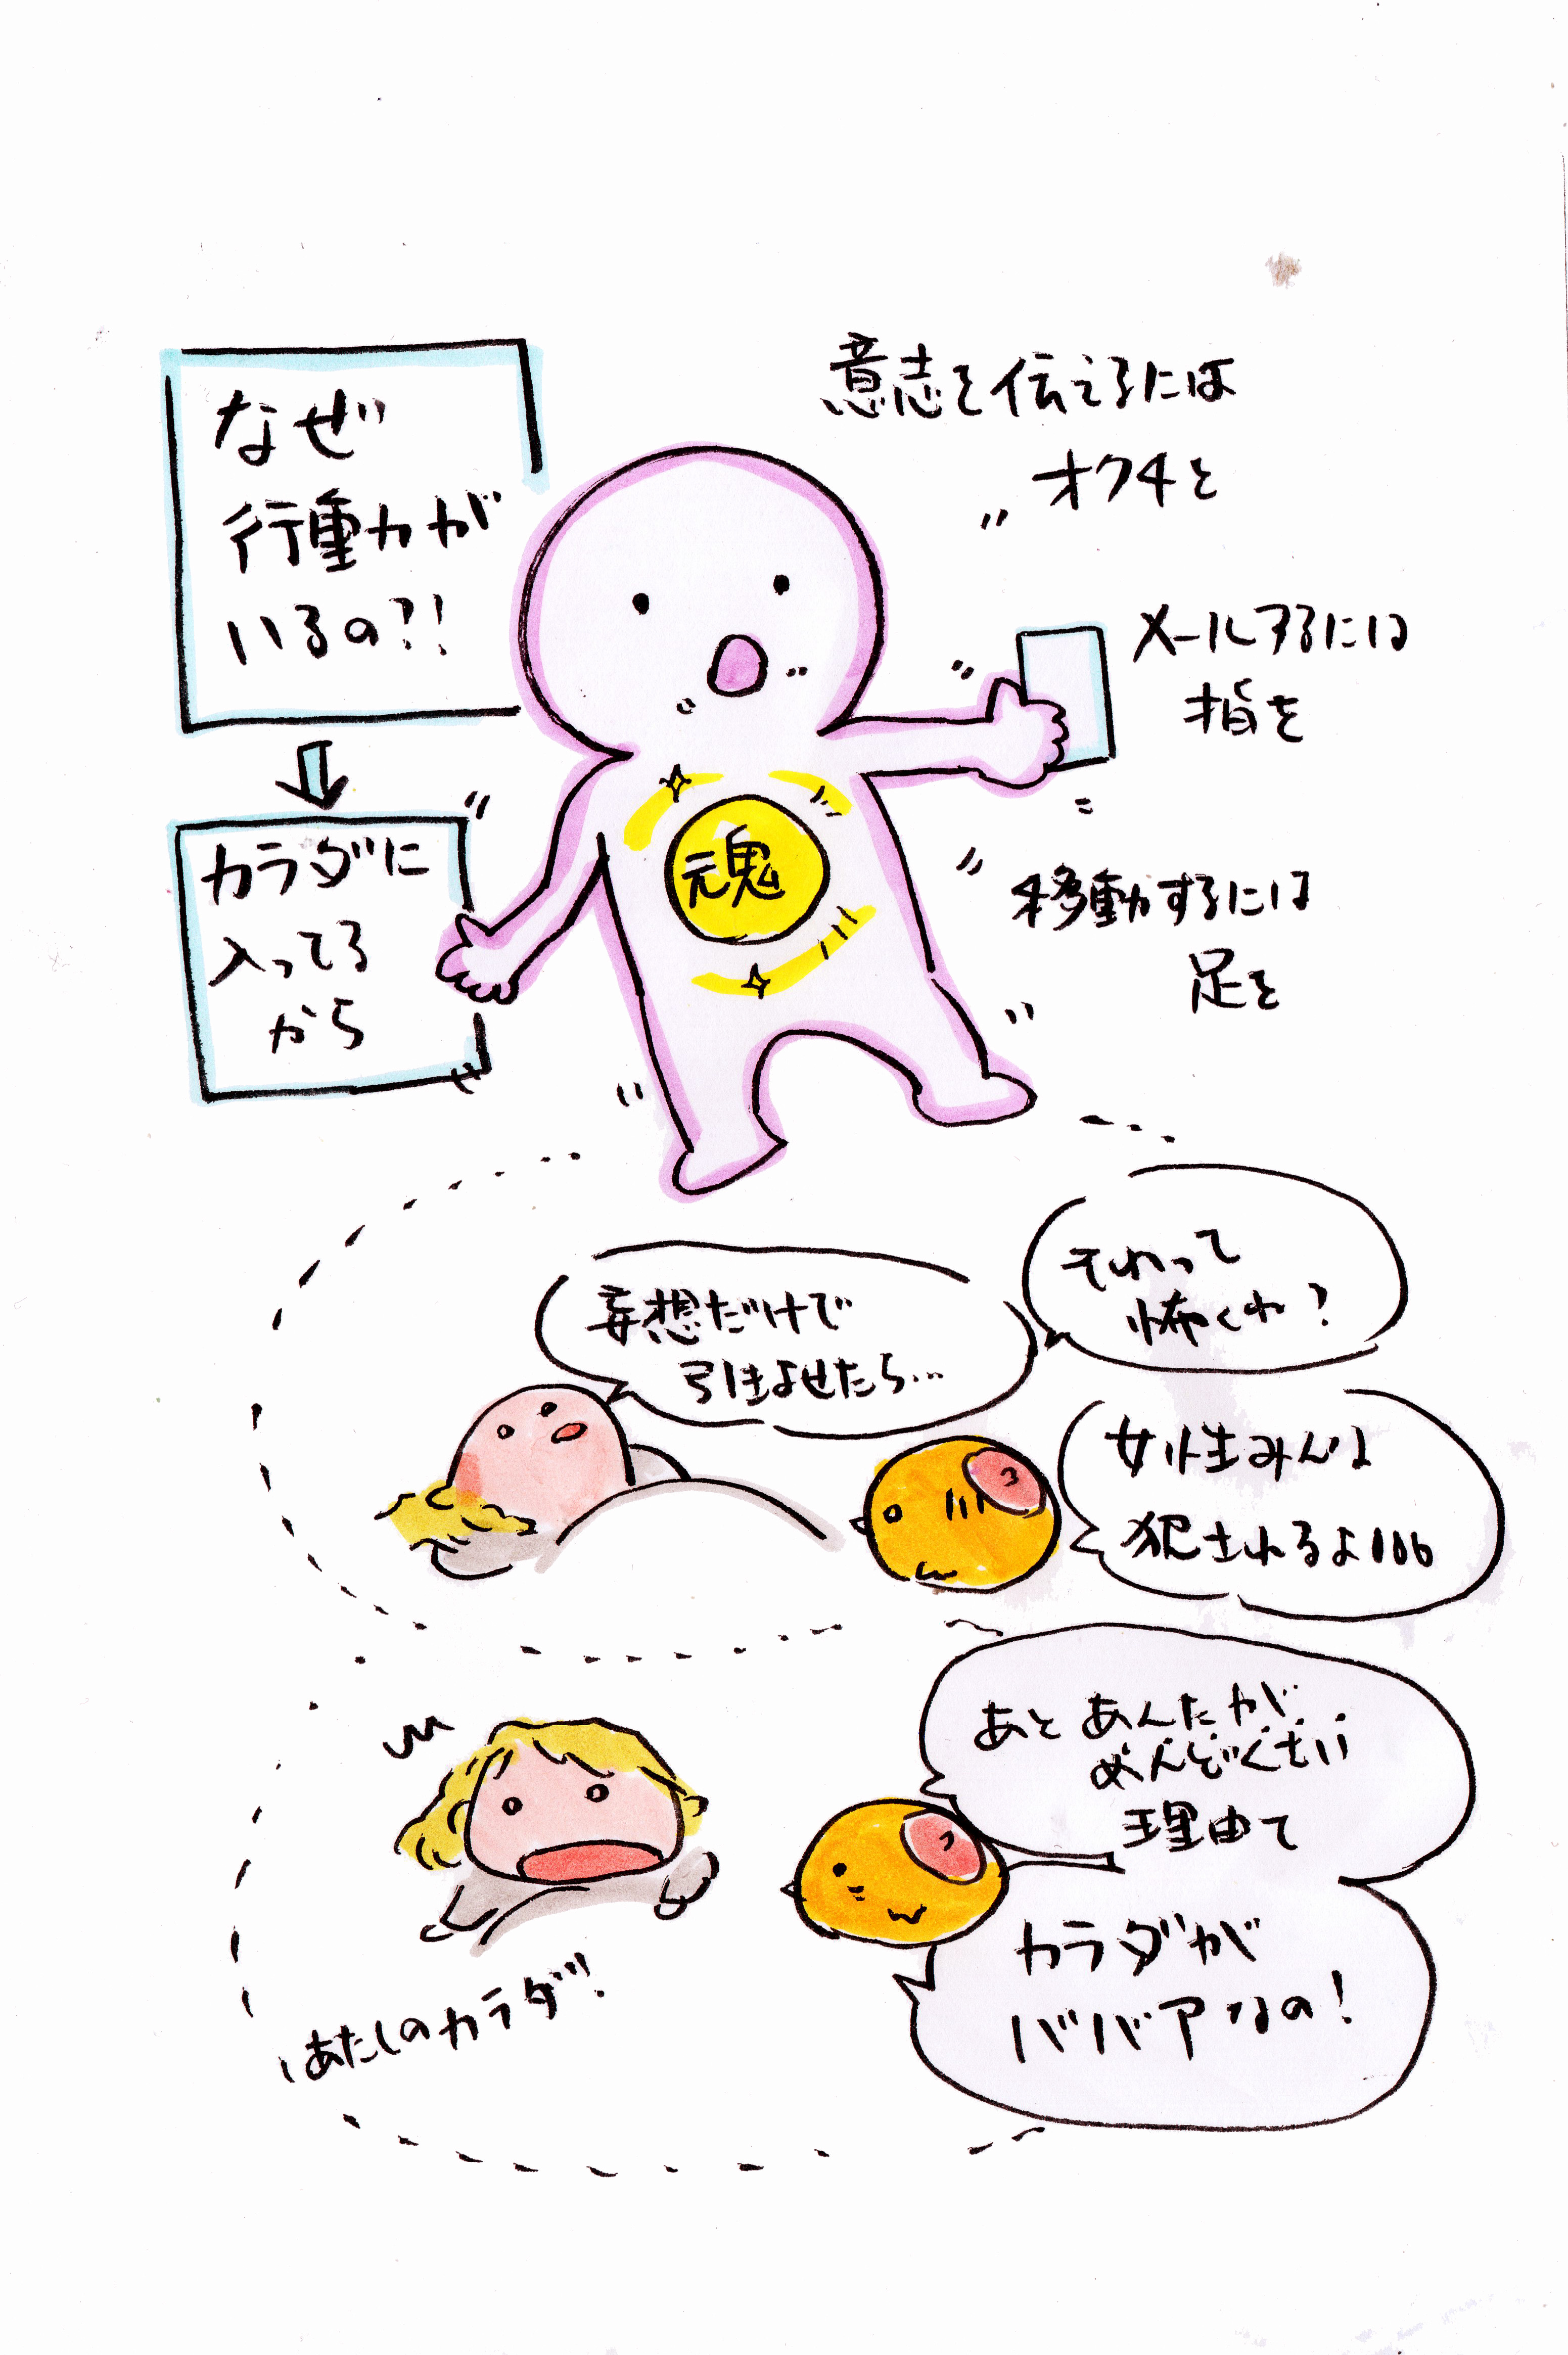 なぜ
行動力が
いるの?!
カラダに
入ってる
から
意志を伝えるには
オクチと
メールするには
指を
移動するには
足を
魂
妄想だけで
引きよせたら…
それって
怖くね?
女性みんな
犯されるよ
あと あんたが
めんどくさい
理由て
カラダが
ババアなの!
あたしのカラダ!